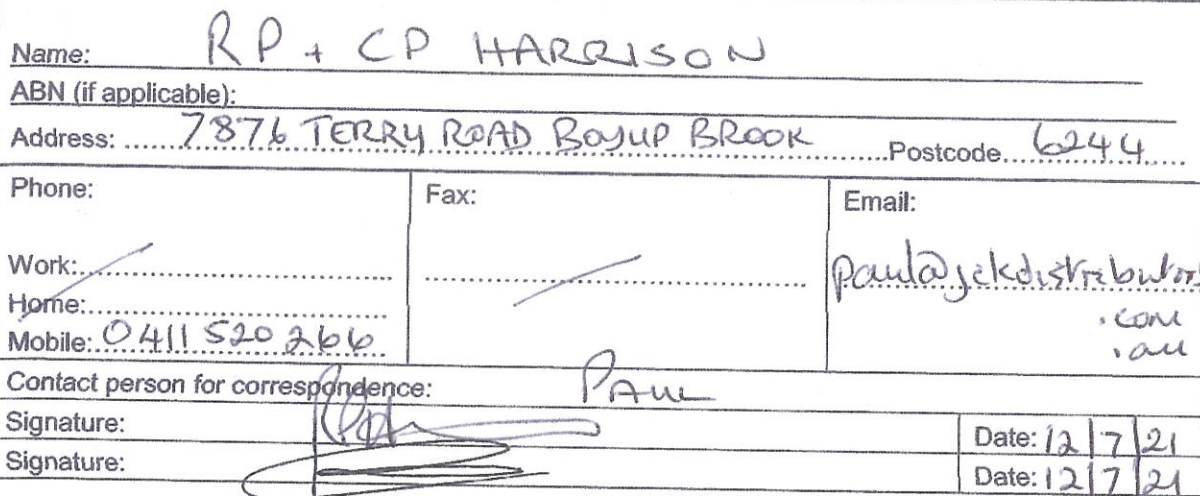 Name: RP + CP HARRISON
ABN (if applicable):
Address: 7876 TERRY ROAD BOYUP BROOK Postcode 6244
Phone: Fax: Email:
Work: paul@jckdistributors
Home: .com
Mobile: 0411 520 266 .au
Contact person for correspondence: PAUL
Signature: Date: 12/7/21
Signature: Date: 12/7/21